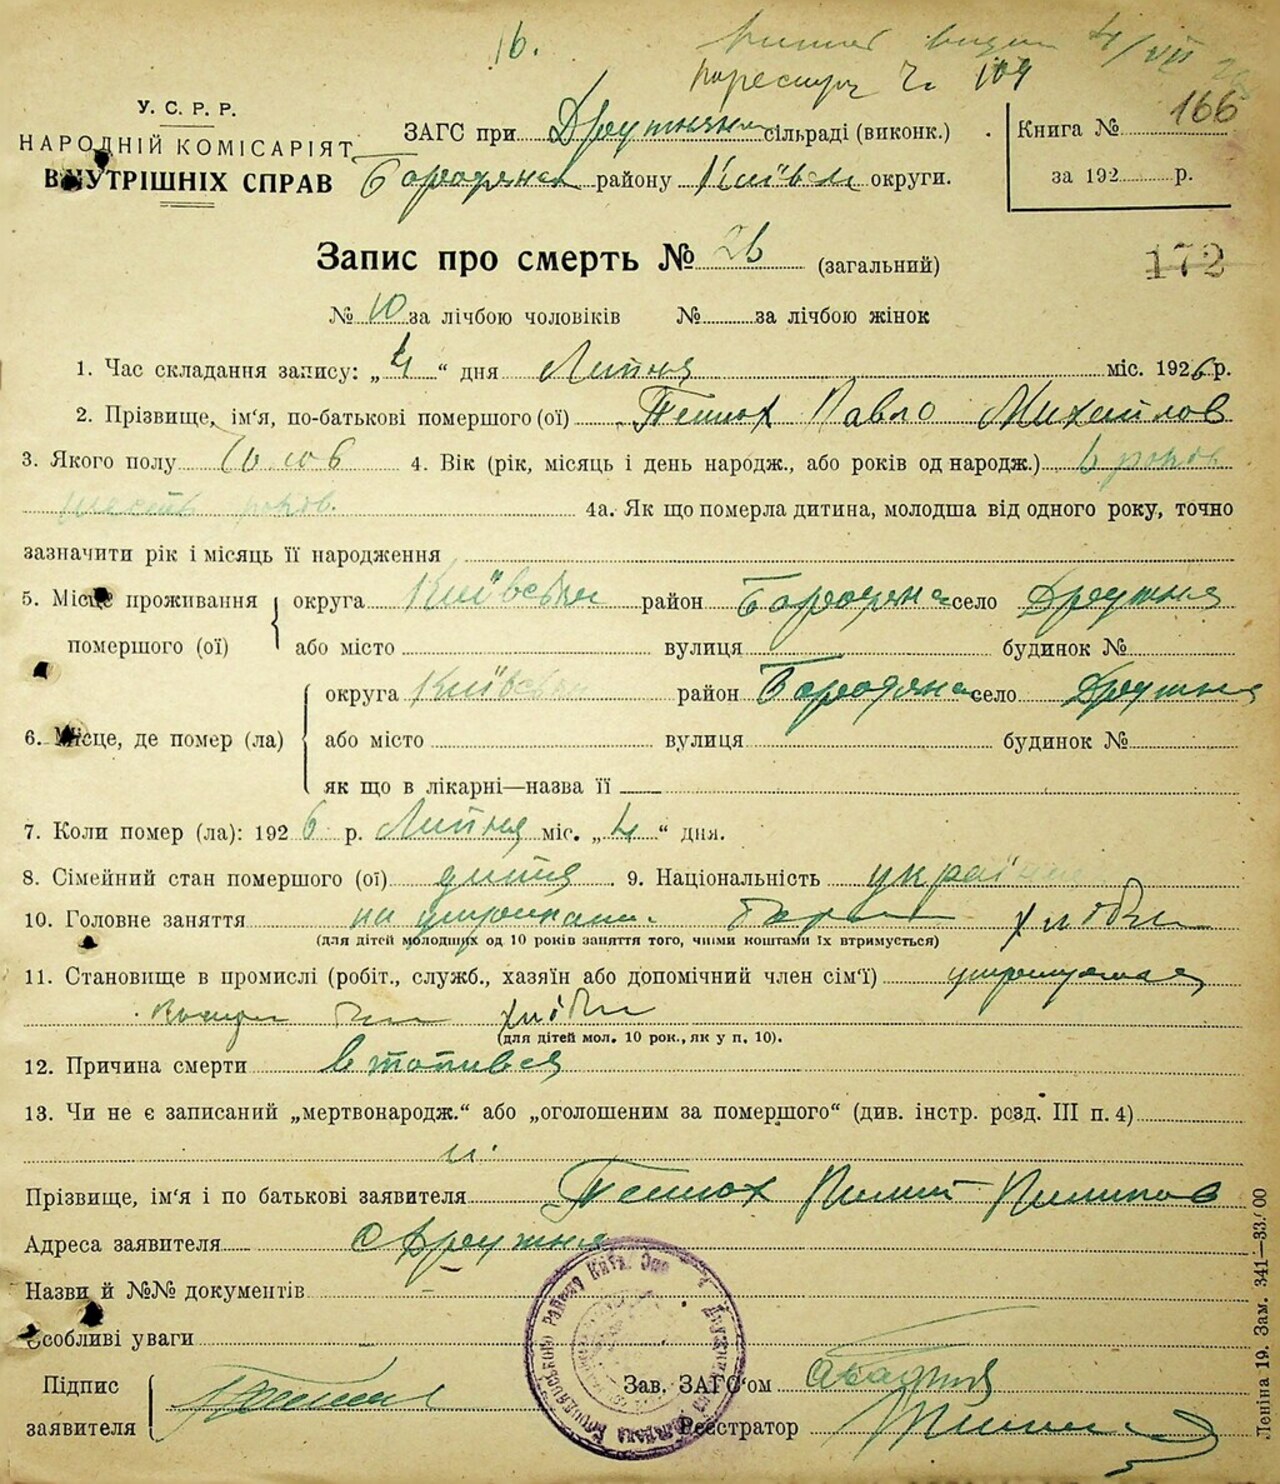 16.
У. С. Р. Р.
НАРОДНІЙ КОМІСАРІЯТ
ВНУТРІШНІХ СПРАВ
ЗАГС при сільраді (виконк.)
району округи.
Книга № 166
за 192 р.
Запис про смерть № 26 (загальний)
172
№ 10 за лічбою чоловіків № за лічбою жінок
1. Час складання запису: „4“ дня Липня міс. 1926 р.
2. Прізвище, ім'я, по-батькові помершого (ої) Павло Михайлов
3. Якого полу 4. Вік (рік, місяць і день народж., або років од народж.) 6 років
шесть років. 4а. Як що померла дитина, молодша від одного року, точно
зазначити рік і місяць її народження
5. Місце проживання помершого (ої) округа Київська район Бородянс село Дружня
або місто вулиця будинок №
6. Місце, де помер (ла) округа Київська район Бородянс село Дружня
або місто вулиця будинок №
як що в лікарні—назва її
7. Коли помер (ла): 1926 р. Липня міс. „4“ дня.
8. Сімейний стан помершого (ої) дитя 9. Національність
10. Головне заняття
(для дітей молодших од 10 років заняття того, чиїми коштами їх втримується)
11. Становище в промислі (робіт., служб., хазяїн або допомічний член сім'ї)
(для дітей мол. 10 рок., як у п. 10).
12. Причина смерти втопився
13. Чи не є записаний „мертвонародж.“ або „оголошеним за помершого“ (див. інстр. розд. III п. 4)
Прізвище, ім'я і по батькові заявителя
Адреса заявителя с Дружня
Назви й №№ документів
Особливі уваги
Підпис заявителя
Зав. ЗАГС'ом
Реєстратор
Леніна 19. Зам. 341—33.000